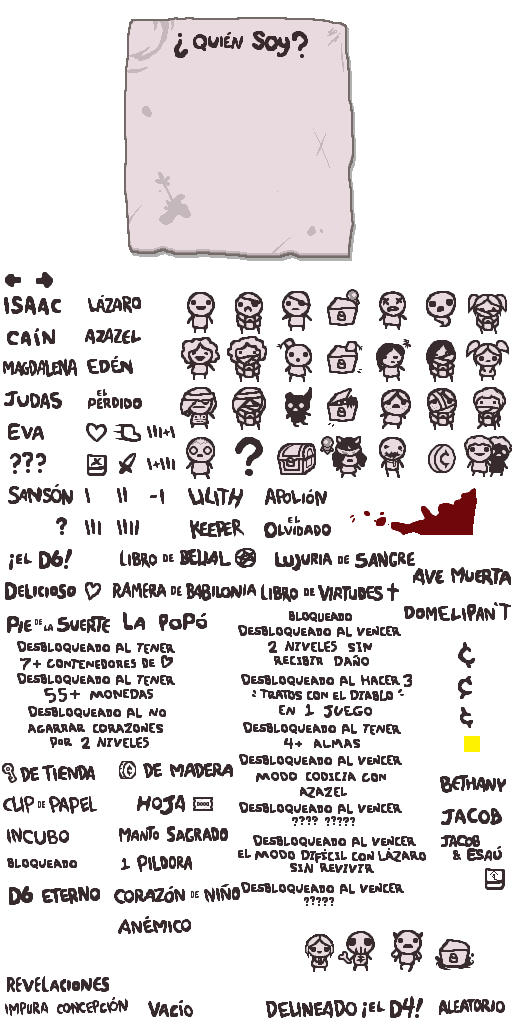 ¿QUIÉN SOY?
ISAAC LÁZARO
CAÍN AZAZEL
MAGDALENA EDÉN
JUDAS EL PERDIDO
EVA
???
?
SANSÓN I II -I LILITH APOLIÓN
? III IIII KEEPER EL OLVIDADO
¡EL D6! LIBRO DE BELIAL LUJURIA DE SANGRE
AVE MUERTA
DELICIOSO RAMERA DE BABILONIA LIBRO DE VIRTUDES
DOMELIPAN'T
PIE DE LA SUERTE LA POPÓ
BLOQUEADO
DESBLOQUEADO AL VENCER
2 NIVELES SIN
RECIBIR DAÑO
DESBLOQUEADO AL TENER
7+ CONTENEDORES DE
DESBLOQUEADO AL TENER
55+ MONEDAS
DESBLOQUEADO AL NO
AGARRAR CORAZONES
POR 2 NIVELES
DESBLOQUEADO AL HACER 3
TRATOS CON EL DIABLO
EN 1 JUEGO
DESBLOQUEADO AL TENER
4+ ALMAS
DESBLOQUEADO AL VENCER
MODO CODICIA CON
AZAZEL
DESBLOQUEADO AL VENCER
???? ?????
DESBLOQUEADO AL VENCER
EL MODO DIFÍCIL CON LÁZARO
SIN REVIVIR
DESBLOQUEADO AL VENCER
?????
¢
¢
¢
DE TIENDA DE MADERA
CLIP DE PAPEL HOJA
INCUBO MANTO SAGRADO
BLOQUEADO 1 PILDORA
D6 ETERNO CORAZÓN DE NIÑO
ANÉMICO
BETHANY
JACOB
JACOB
& ESAÚ
REVELACIONES
IMPURA CONCEPCIÓN VACÍO DELINEADO ¡EL D4! ALEATORIO